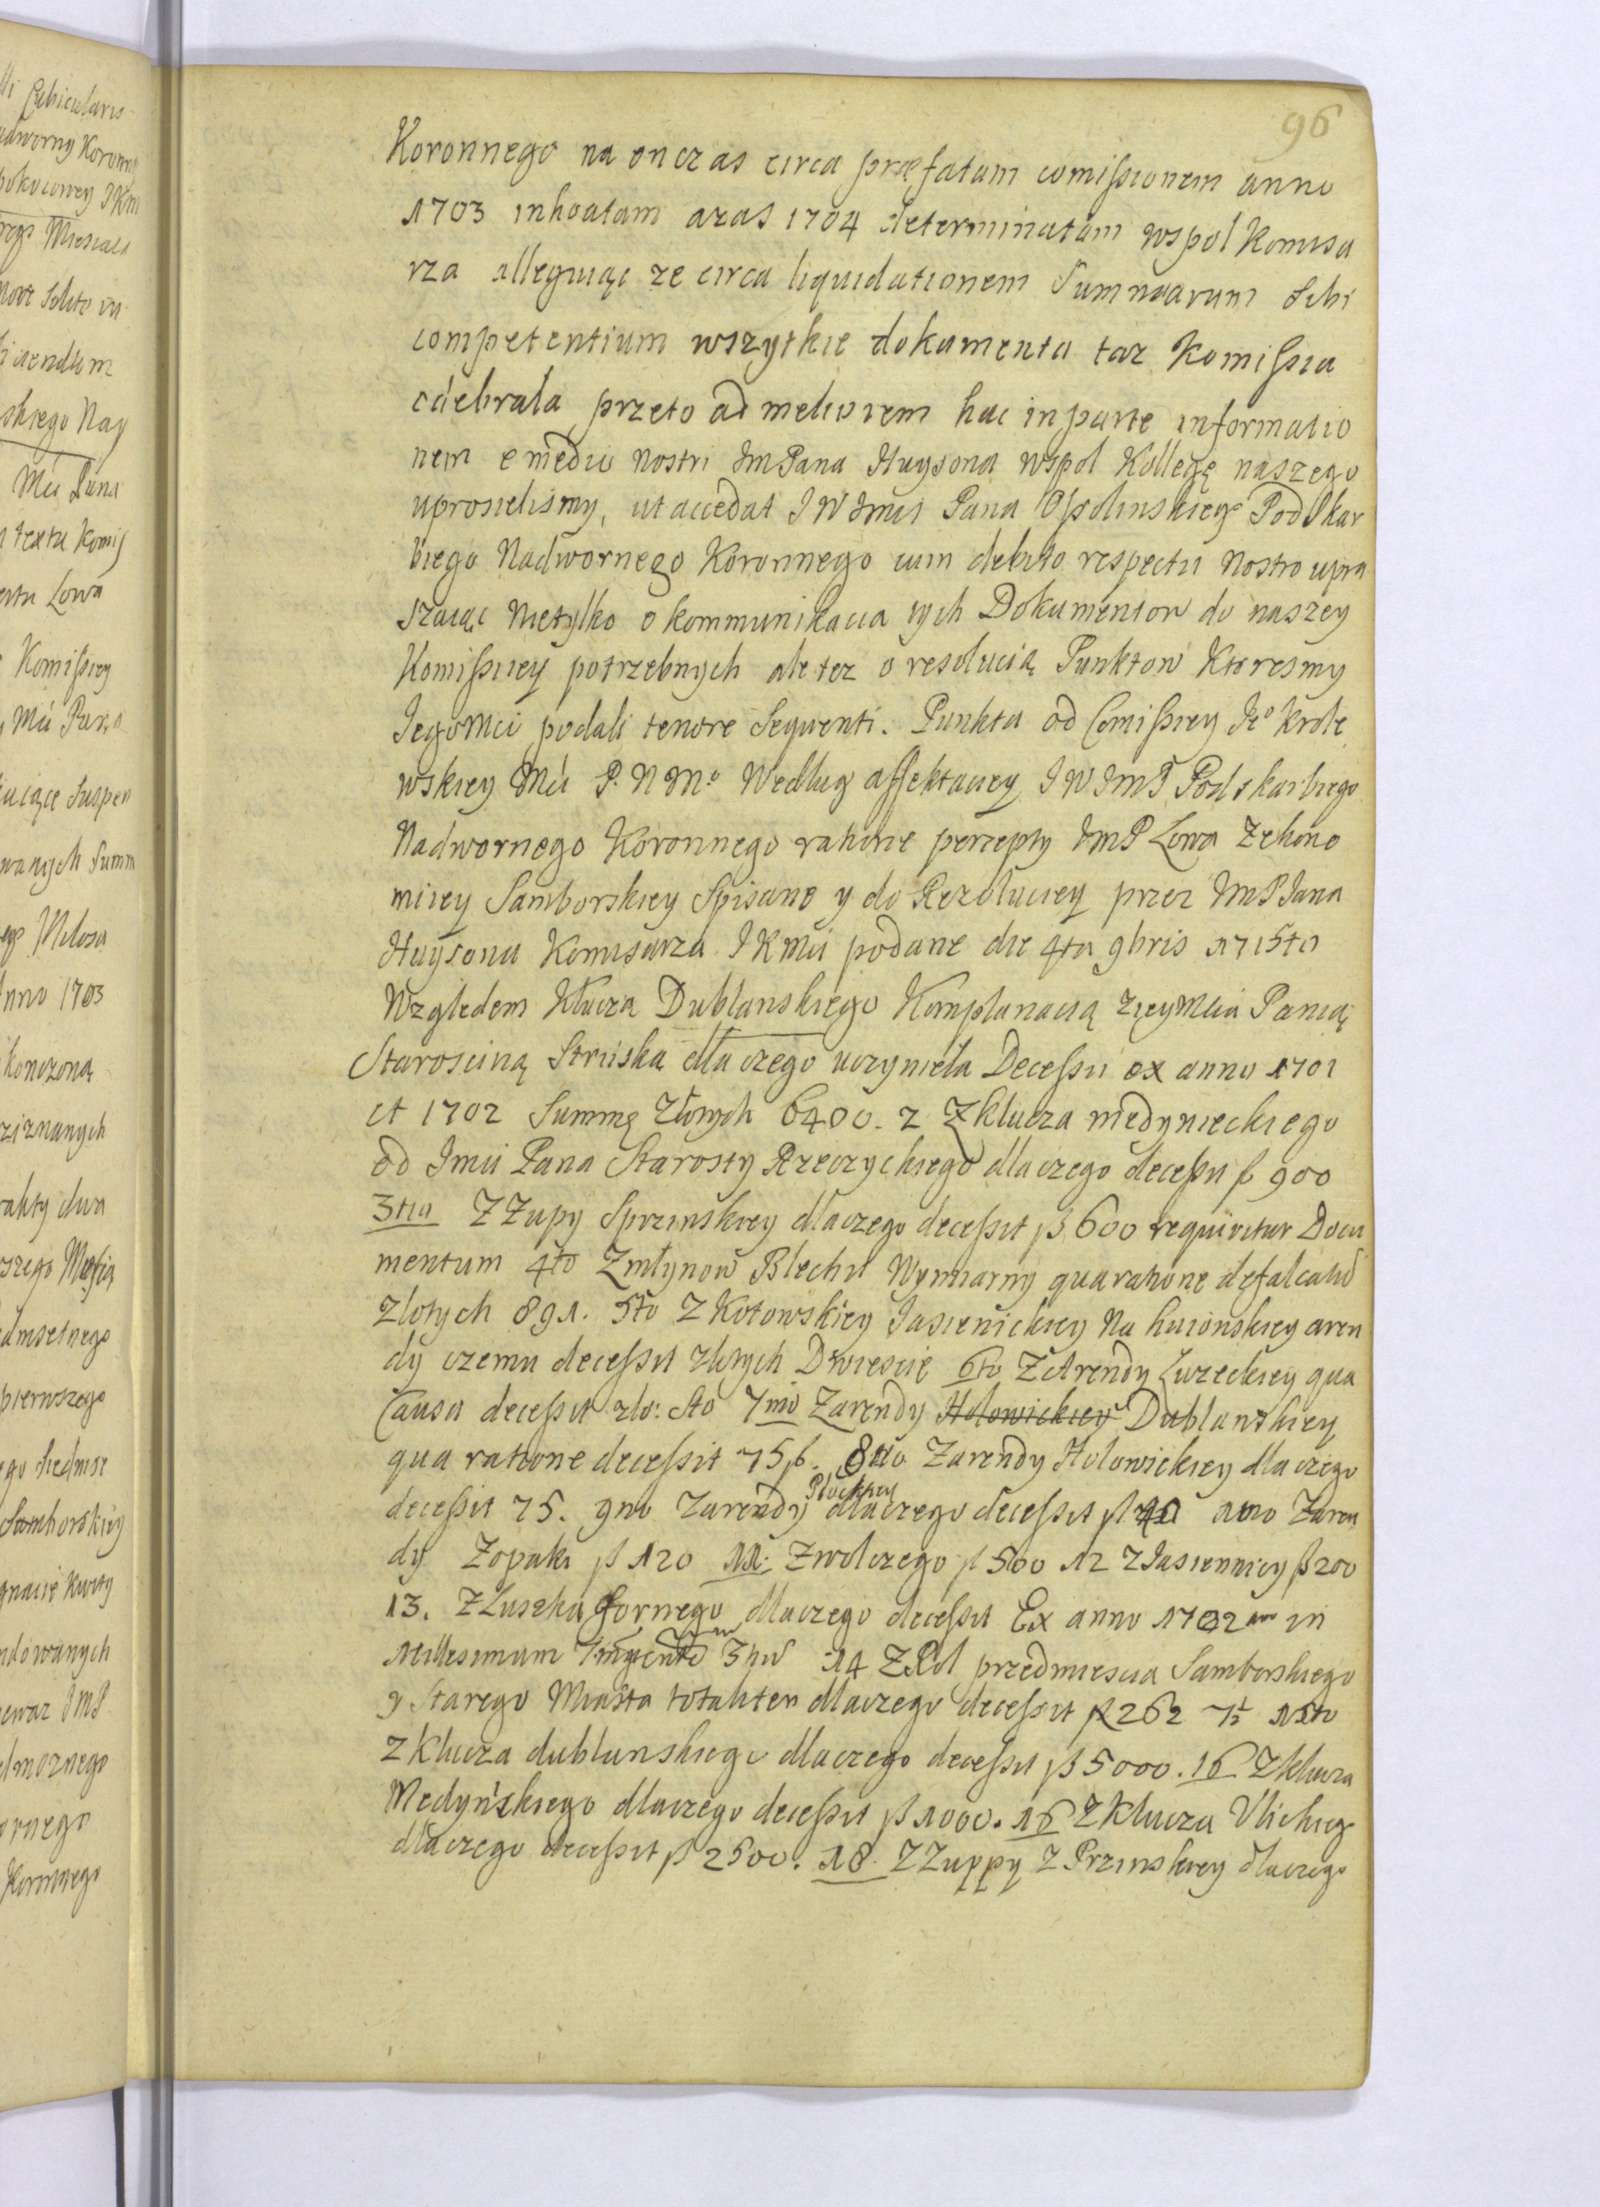 96
Koronnego na onczas circa præfatam comissionem anno
1703 inhoatam azas 1704 determinatam wspol Komisa
rza allegując ze circa liquidationem Summarum Sibi
competentium wszytkie dokumenta taz Komissia
odebrała przeto ad meliorem hac in parte informatio
nem e medio nostri ImPana Huysona wspol Kollegę naszego
uprosielismy, ut accedat J W Imci Pana Opolinskiego PodSkar
biego Nadwornego Koronnego cum debito respectu nostro upra
szaiąc nietylko o kommunikacia tych Dokumentow do naszey
Komissiiey potrzebnych ale tez o resolucią Punktow Ktoresmy
Jegomci podali tenore Sequenti. Punkta od Comissiey Jeo Krole
wskiey Mci P. N Mo Według affektaciey J W ImP Podskarbiego
Nadwornego Koronnego ratione percepty ImP Lowa Zekono
miiey Samborskiey Spisane y do Rezoluciey przez ImP Jana
Huysona Komisarza J K Mci podane die 4ta 9bris 1715to
Względem Klucza Dublanskiego Komplanacią zieymcia Panią
Starosciną Striiska dla czego uczyniela Decessu ex anno 1701
et 1702 Summę Złotych 6400. 2 Z klucza medynieckiego
od Imci Pana Starosty Rzeczyckiego dlaczego decessu ƒ 900
3tia Z Zupy Sprzinskiey dlaczego decessit ƒ 600 requiritur Docu
mentum 4to Zmłynow Blechu Wymiarny qua ratione defalcatio
zlotych 891. 5to Z Kotowskiey Jasienickiey Na huionskiey aren
dy czemu decessit złotych Dwiescie 6to Z Arendy Luzeckiey qua
Causa decessit zlo: Sto 7mo Zarendy Holowickiey Dublanskiey
qua ratione decessit 75 ƒ. 8uo Zarendy Holowickiey dla czego
Płockiey
decessit 75. 9no Zarendy dlaczego decessit ƒ 1mo Zaren
dy Zopaki ƒ 120 11. Zwolczego ƒ 500 12 Z Jasiennicy ƒ 200
13. Z Luszka Gornego dlaczego decessit Ex anno 1702 in
Millesimum 14 Z Rol przedmiescia Samborskiego
y Starego Miasta totaliter dlaczego decessit ƒ 262 15to
Z klucza dublanskiego dlaczego decessit ƒ 5000. 16 Z klucza
Medyńskiego dlaczego decessit ƒ 1000. 16 Z Klucza Ulickieg
dlaczego decessit ƒ 2500. 18. Z Zuppy Z Przinskiey dlaczego